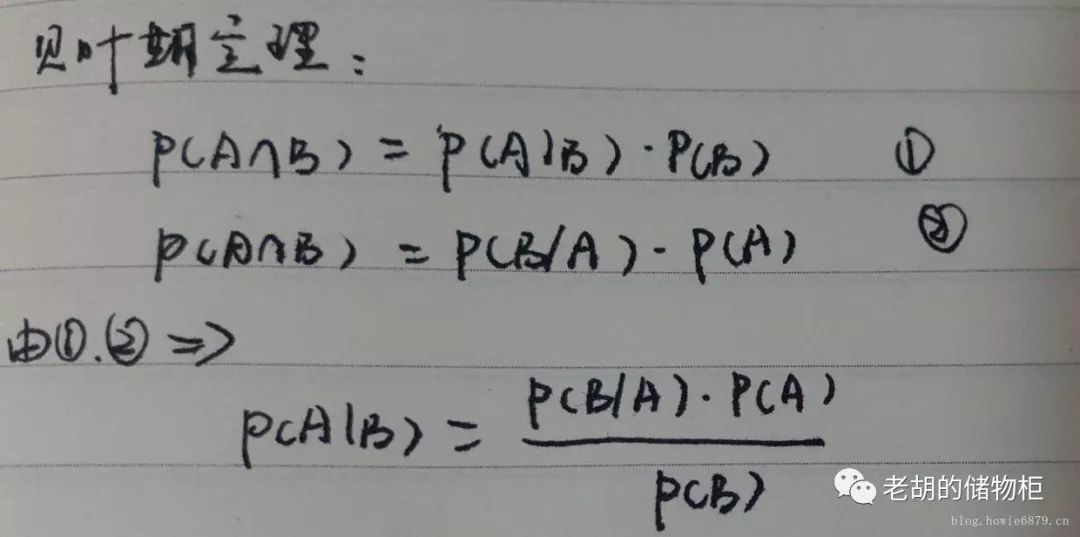 贝叶斯定理：
P(A∩B) = P(A|B)·P(B) ①
P(A∩B) = P(B/A)·P(A) ②
由①.② =>
P(A|B) = P(B/A)·P(A)
P(B)
老胡的储物柜
blog.howie6879.cn